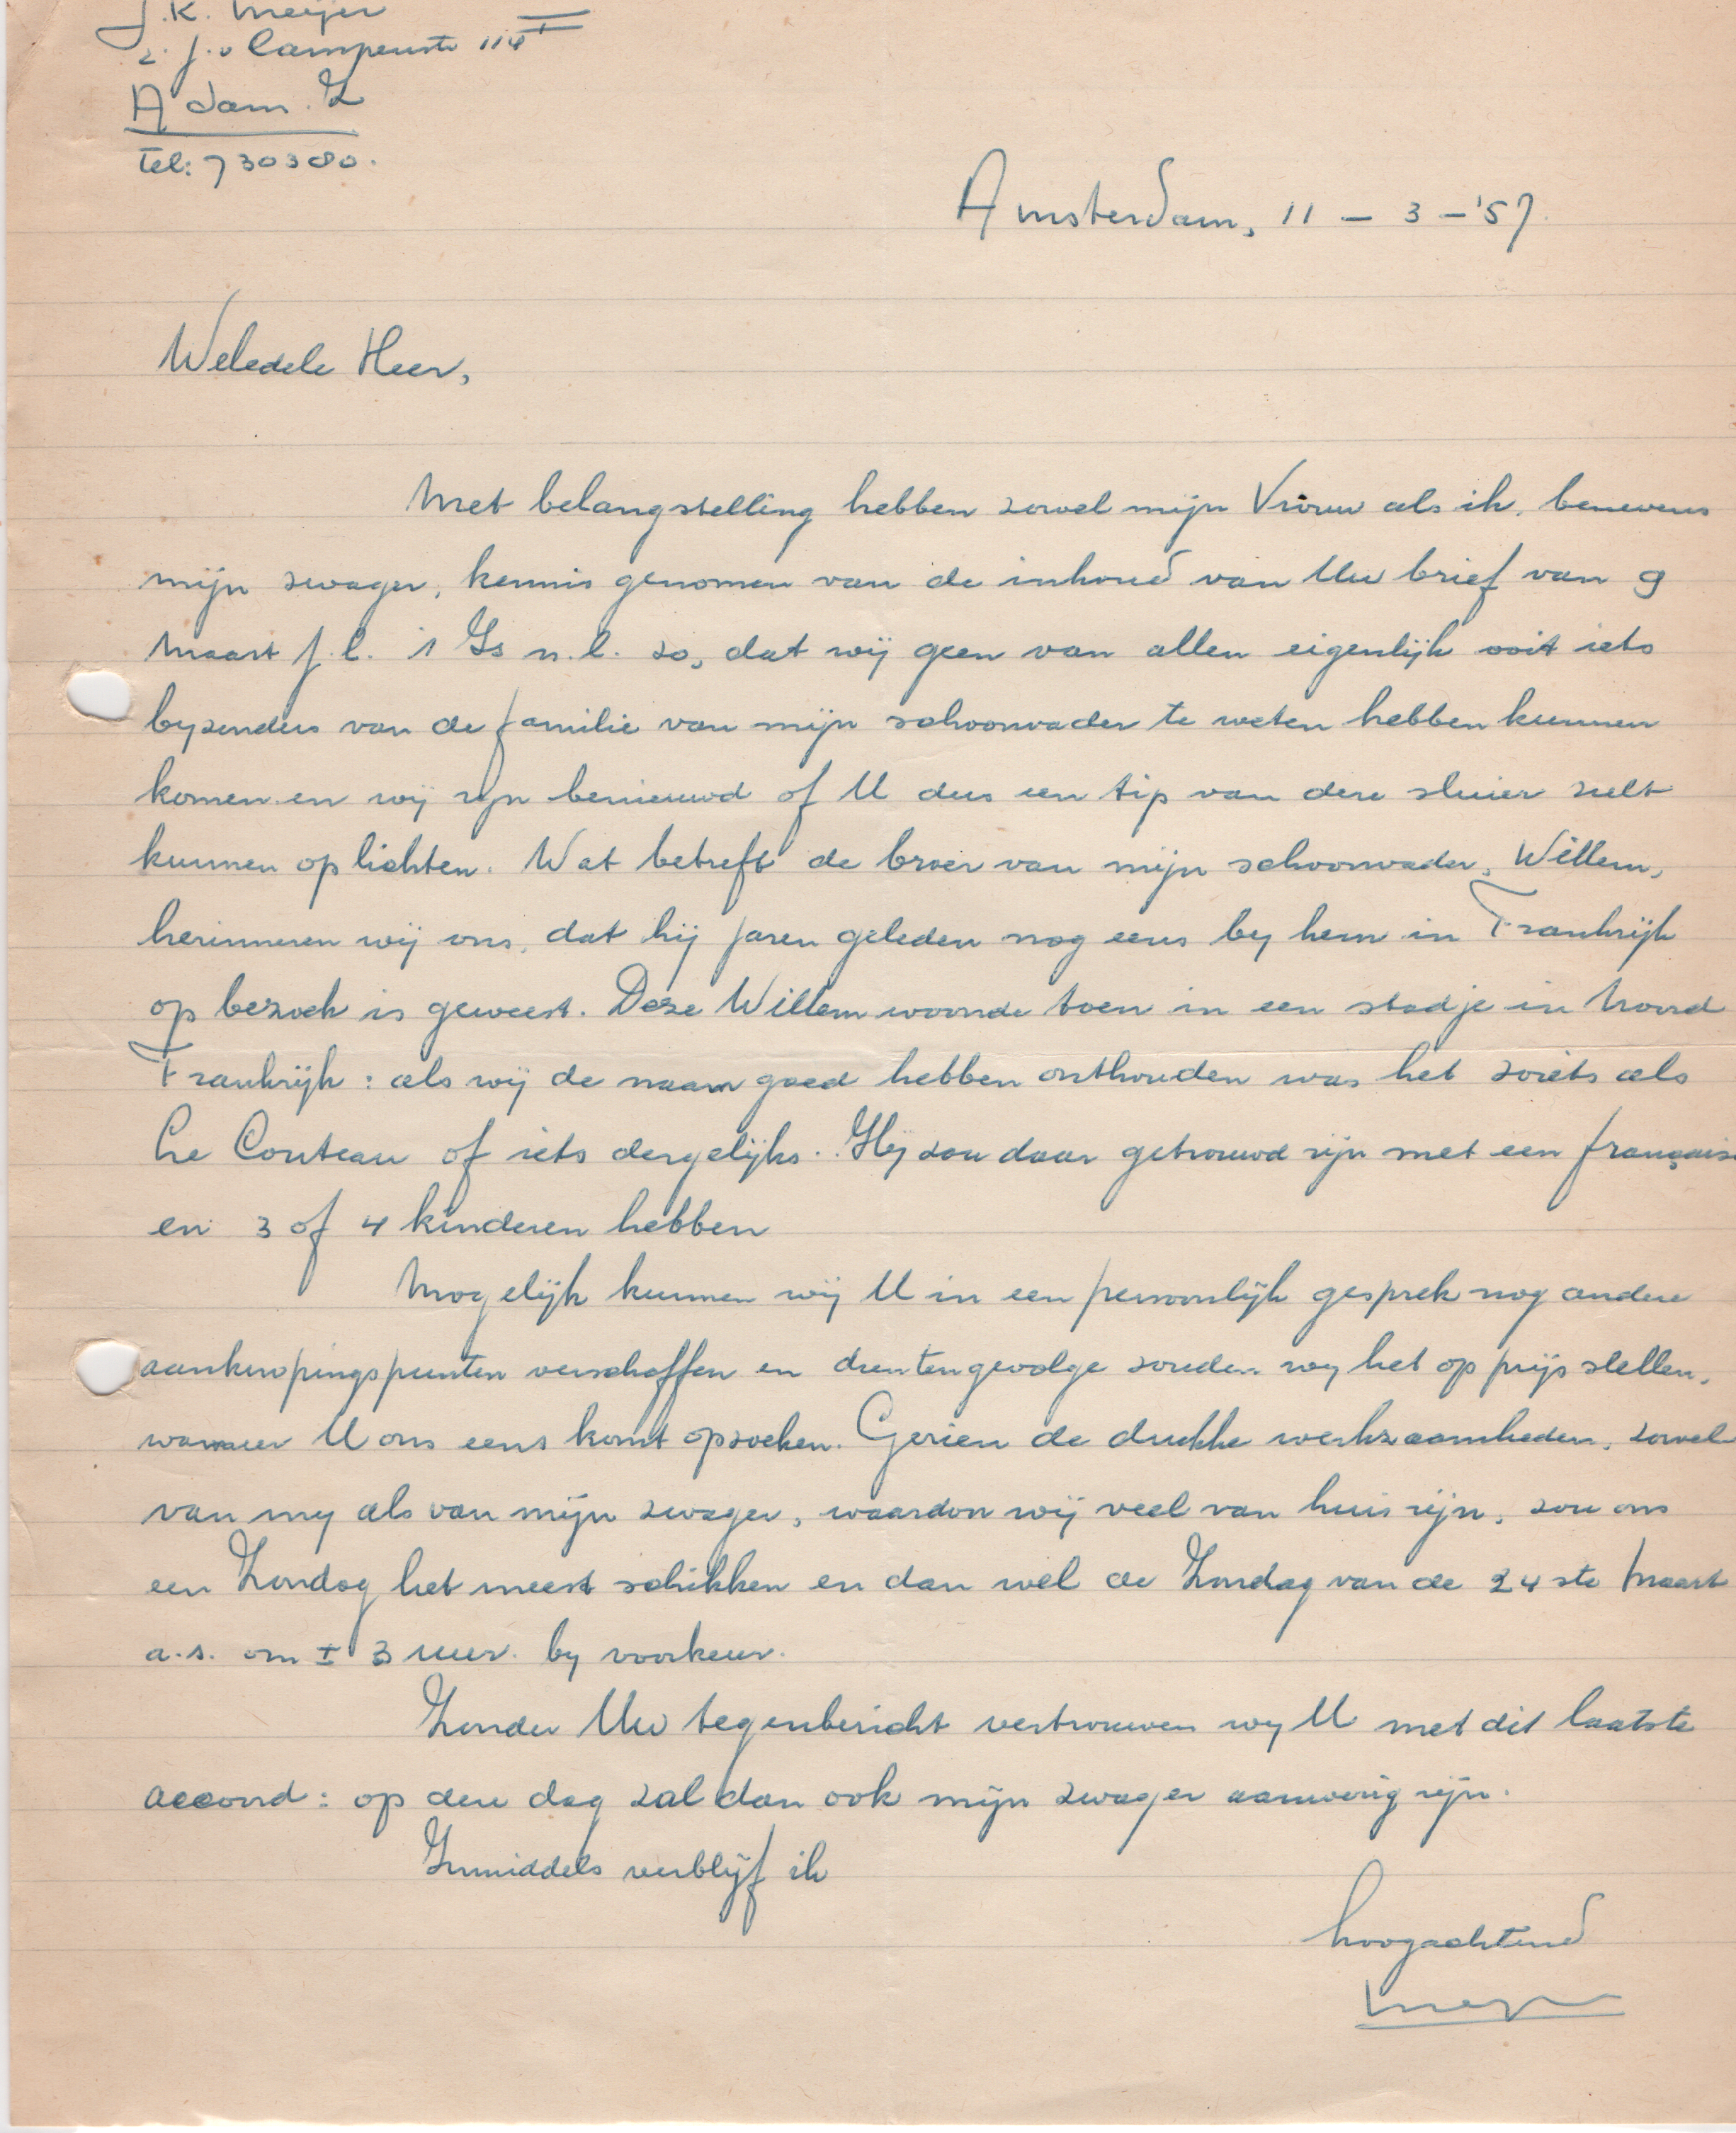 J.K. Meijer
2e J. v Campenstr 114 I
A'dam. Z
Tel: 730380.
Amsterdam, 11 - 3 - '57.
Weledele Heer,
Met belangstelling hebben zowel mijn Vrouw als ik, benevens
mijn zwager, kennis genomen van de inhoud van Uw brief van 9
Maart j.l. 't Is n.l. zo, dat wij geen van allen eigenlijk ooit iets
byzonders van de familie van mijn schoonvader te weten hebben kunnen
komen en wij zijn benieuwd of U dus een tip van deze sluier zult
kunnen oplichten. Wat betreft de broer van mijn schoonvader, Willem,
herinneren wij ons, dat hij jaren geleden nog eens by hem in Frankrijk
op bezoek is geweest. Deze Willem woonde toen in een stadje in Noord
Frankrijk: als wij de naam goed hebben onthouden was het zoiets als
Le Couteau of iets dergelijks. Hij zou daar getrouwd zijn met een française
en 3 of 4 kinderen hebben
Mogelijk kunnen wij U in een persoonlijk gesprek nog andere
aanknopingspunten verschaffen en dientengevolge zouden wy het op prijs stellen,
wanneer U ons eens komt opzoeken. Gezien de drukke werkzaamheden, zowel
van my als van mijn zwager, waardoor wij veel van huis zijn, zou ons
een Zondag het meest schikken en dan wel de Zondag van de 24ste Maart
a.s. om ± 3 uur by voorkeur.
Zonder Uw tegenbericht vertrouwen wy U met dit laatste
accoord: op deze dag zal dan ook mijn zwager aanwezig zijn.
Inmiddels verblijf ik
hoogachtend
Meijer